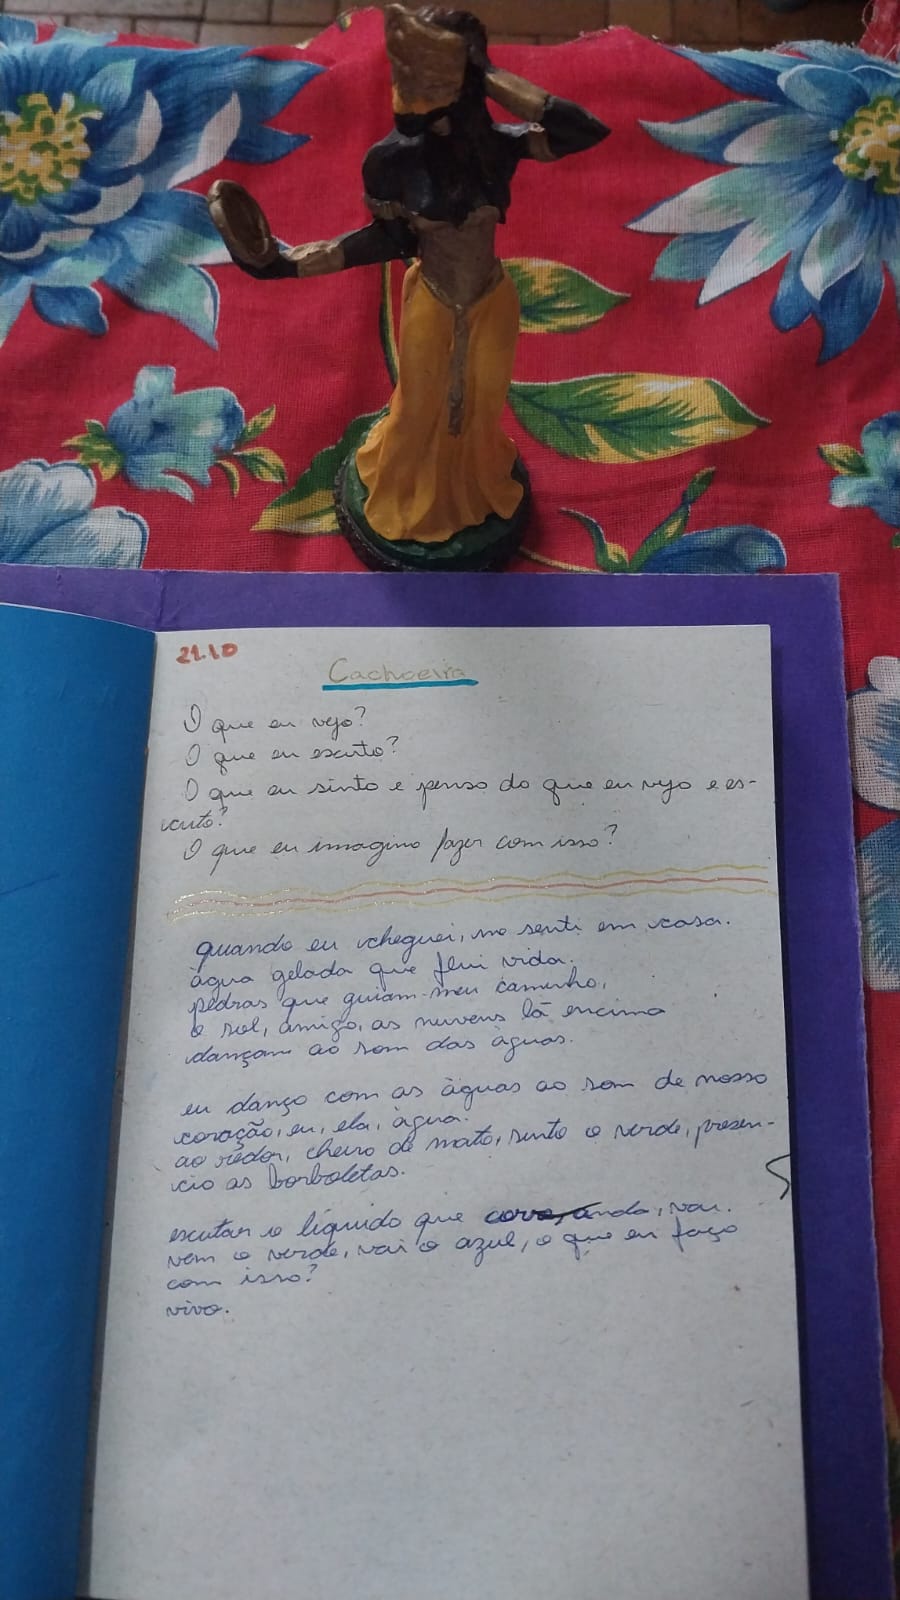 21.10
Cachoeira
O que eu vejo?
O que eu escuto?
O que eu sinto e penso do que eu vejo e es-
cuto?
O que eu imagino fazer com isso?
quando eu cheguei, me senti em casa.
água gelada que flui vida.
pedras que guiam meu caminho,
o sol, amigo, as nuvens lá encima
dançam ao som das águas.
eu danço com as águas ao som de nosso
coração, eu, ela, água.
ao redor, cheiro de mato, sinto o verde, presen-
cio as borboletas.
escutar o líquido que anda, vai.
vem o verde, vai o azul, o que eu faço
com isso?
vivo.